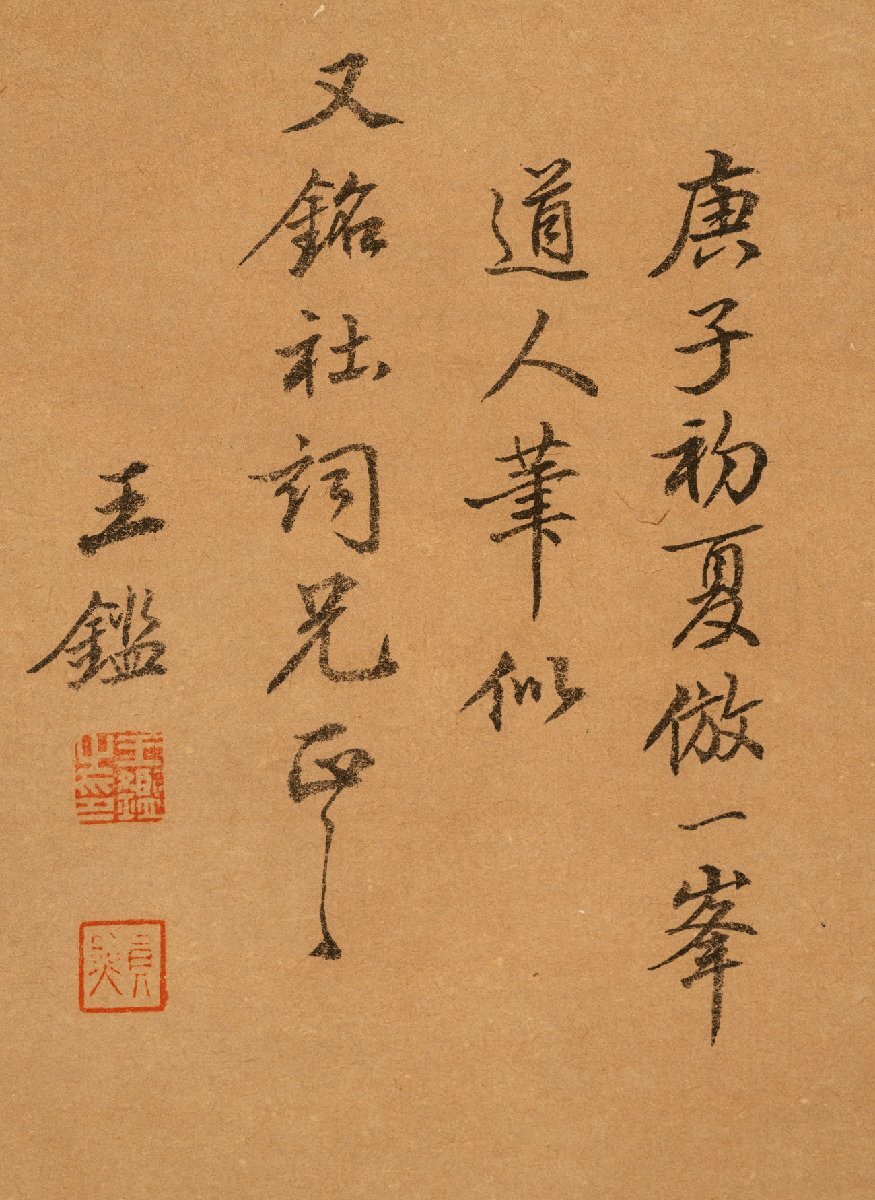 庚子初夏倣一峯
道人筆似
又銘社詞兄正之
王鑑
王鑑之印
員照